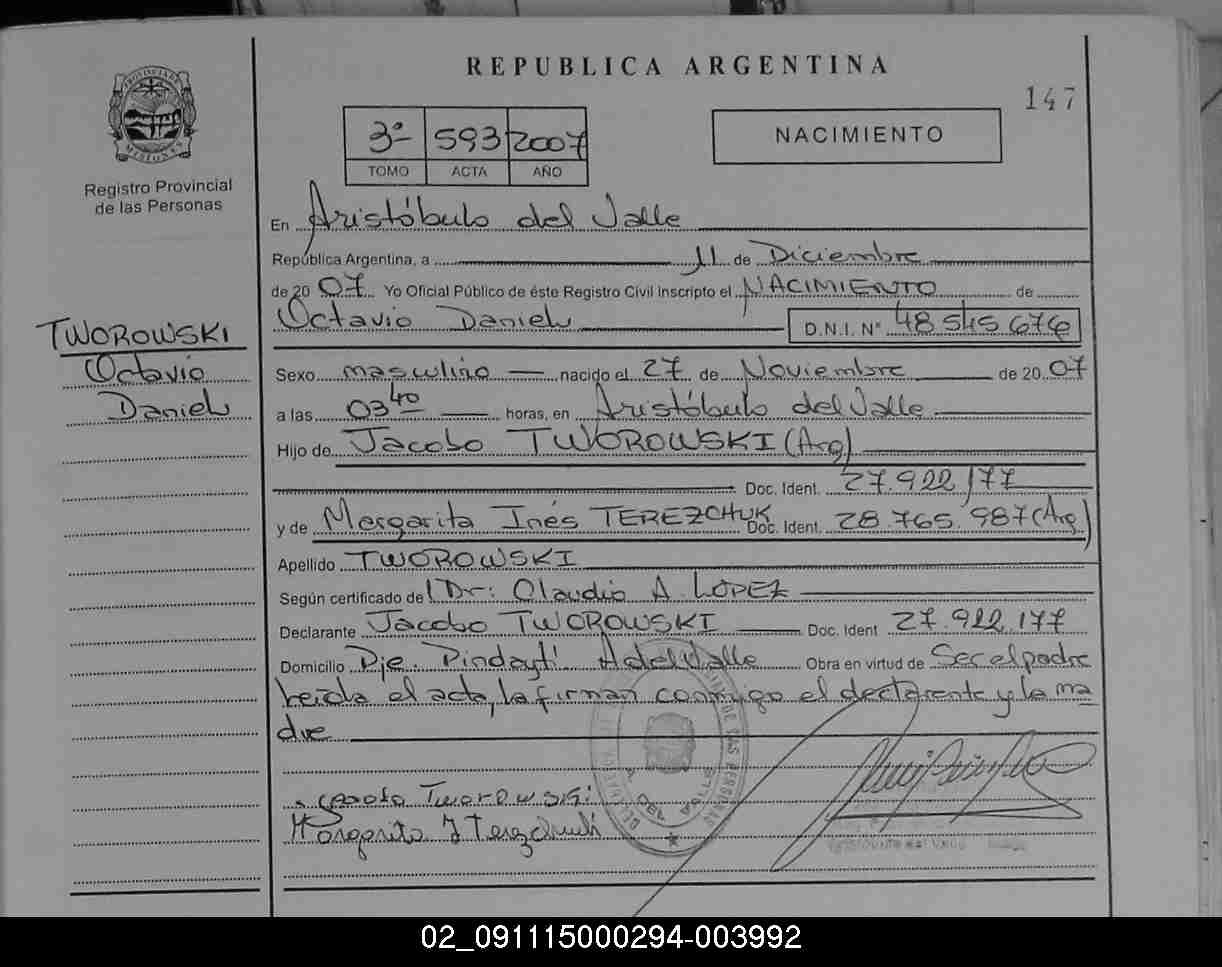 REPUBLICA ARGENTINA
147
3º 593 2007
TOMO ACTA AÑO
NACIMIENTO
PROVINCIA DE MISIONES
Registro Provincial
de las Personas
En Aristóbulo del Valle
República Argentina, a 11 de Diciembre
de 20 07 Yo Oficial Público de éste Registro Civil inscripto el NACIMIENTO de
Octavio Daniel D.N.I. Nº 48 545 676
TWOROWSKI
Octavio
Daniel
Sexo masculino nacido el 27 de Noviembre de 20 07
a las 03 40 horas, en Aristóbulo del Valle
Hijo de Jacobo TWOROWSKI (Arg)
Doc. Ident. 27.922 177
y de Margarita Inés TEREZCHUK Doc. Ident. 28.765.987 (Arg)
Apellido TWOROWSKI
Según certificado de Dr: Claudio A. LOPEZ
Declarante Jacobo TWOROWSKI Doc. Ident 27.922.177
Domicilio Pje. Pindaytí A del Valle Obra en virtud de Ser el padre
Leída el acta, la firman conmigo el declarante y la ma
dre
Tworowski
Margarita I Terezchuk
02_091115000294-003992